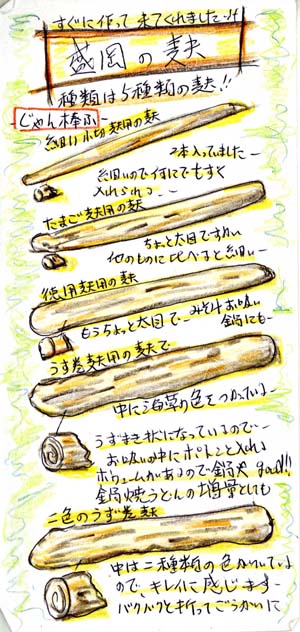 すぐに作って来てくれました!!
盛岡の麸
種類は5種類の麸!!
じゃん棒ふ
細い小切麸用の麸
2本入ってました
細いので何にでもすぐ
入れられる
たまご麸用の麸
ちょっと太目ですね
他のものに比べると細い
徳用麸用の麸
もうちょっと太目で みそ汁お吸い
鍋にも
うず巻麸用の麸で
中に海草の色をつけている
うずまき状になっているので
お吸の中にポトンと入れる
ボリュームがあるので鍋や good!!
鍋焼うどんの増量としても
二色のうず巻麸
中は二種類の色がついている
ので、キレイに感じます
バクバクと折ってごうかいに